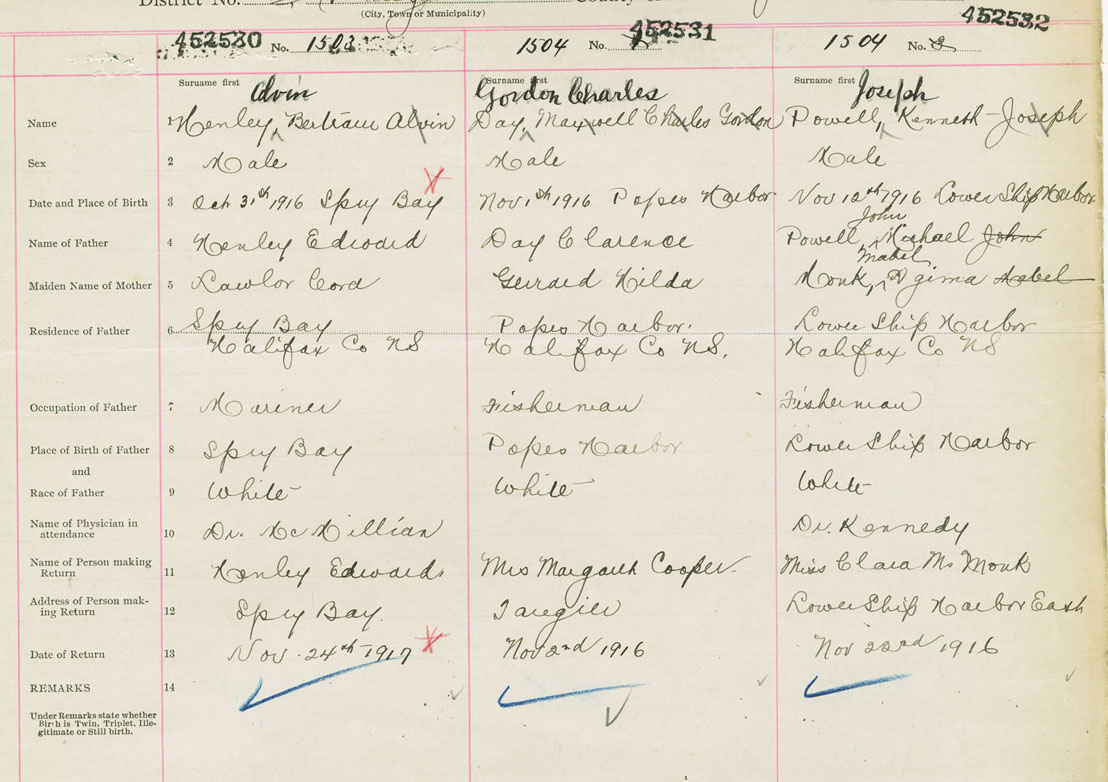 District No.
(City, Town or Municipality)
452530 No. 1503 1504 No. 452531 1504 No. 452532
Surname first Surname first Surname first
Alvin Gordon Charles Joseph
Name 1 Henley, Bertram Alvin Day, Maxwell Charles Gordon Powell, Kenneth Joseph
Sex 2 Male Male Male
Date and Place of Birth 3 Oct 31st 1916 Spry Bay Nov 1st 1916 Popes Harbor Nov 12th 1916 Lower Ship Harbor
John
Name of Father 4 Henley Edward Day Clarence Powell, Michael John
Mabel
Maiden Name of Mother 5 Lawlor Cord Gerrard Hilda Monk, Agima Mabel
Residence of Father 6 Spry Bay Popes Harbor. Lower Ship Harbor
Halifax Co NS Halifax Co NS. Halifax Co NS
Occupation of Father 7 Mariner Fisherman Fisherman
Place of Birth of Father 8 Spry Bay Popes Harbor Lower Ship Harbor
and
Race of Father 9 White White White
Name of Physician in
attendance 10 Dr. McMillian Dr. Kennedy
Name of Person making
Return 11 Henley Edward Mrs Margaret Cooper. Miss Clara M. Monk
Address of Person mak-
ing Return 12 Spry Bay. Tangier Lower Ship Harbor East
Date of Return 13 Nov. 24th 1917 Nov 2nd 1916 Nov 22nd 1916
REMARKS 14
Under Remarks state whether
Birth is Twin, Triplet, Ille-
gitimate or Still birth.